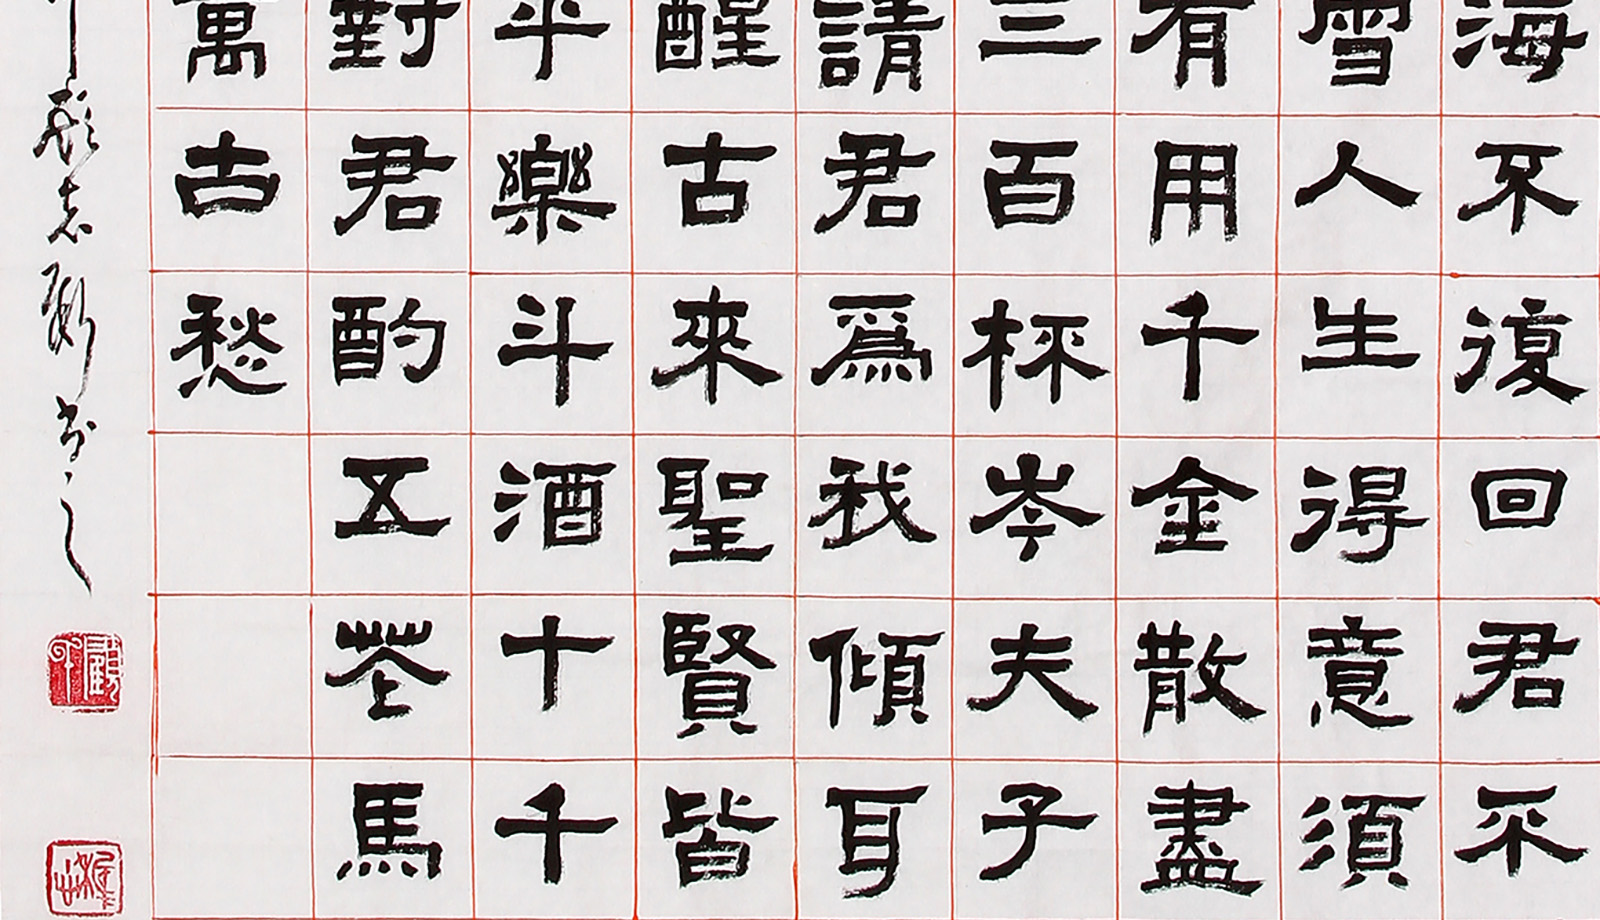 海不復回君不
雪人生得意須
有用千金散盡
三百杯岑夫子
請君爲我傾耳
醒古來聖賢皆
平樂斗酒十千
對君酌五花馬
萬古愁
顾志新书之